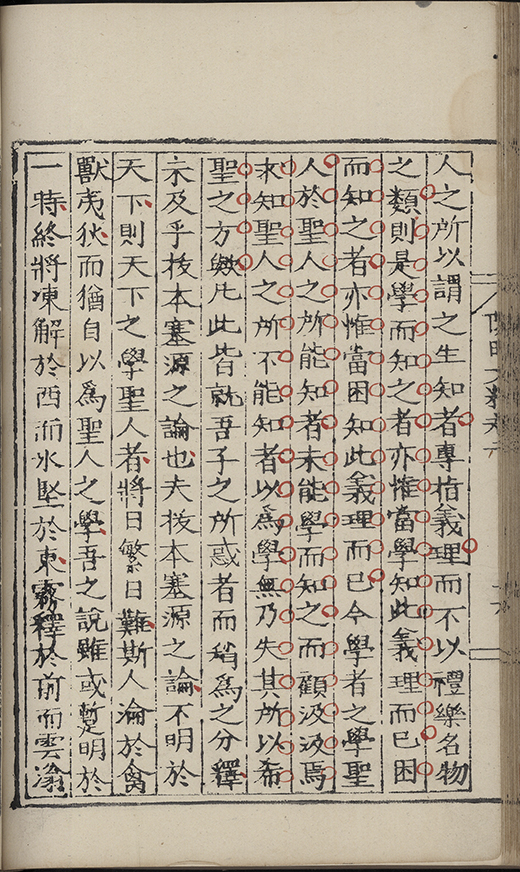 人之所以謂之生知者專指義理而不以禮樂名物
之類則是學而知之者亦惟當學知此義理而已困
而知之者亦惟當困知此義理而已今學者之學聖
人於聖人之所能知者未能學而知之而顧汲汲焉
求知聖人之所不能知者以爲學無乃失其所以希
聖之方歟凡此皆就吾子之所惑者而稍爲之分釋
未及乎拔本塞源之論也夫拔本塞源之論不明於
天下則天下之學聖人者將日繁日難斯人淪於禽
獸夷狄而猶自以爲聖人之學吾之說雖或暫明於
一時終將凍解於西而氷堅於東霧釋於前而雲滃